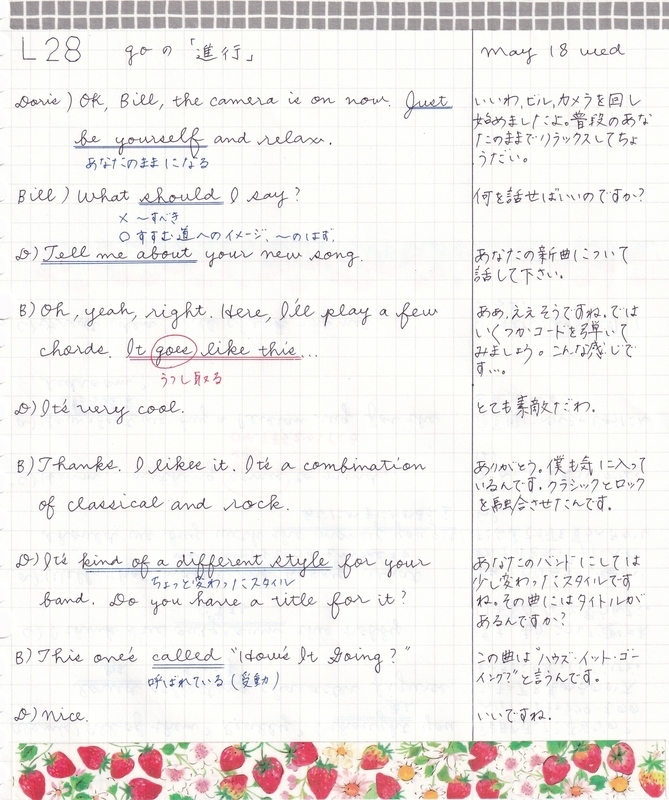 L28 goの「進行」
May 18 wed
Doris) Ok, Bill, the camera is on now. Just
be yourself and relax.
あなたのままになる
いいわ,ビル,カメラを回し
始めましたよ。普段のあな
たのままでリラックスしてちょ
うだい。
Bill) What should I say?
× 〜すべき
○ すすむ道へのイメージ、〜のはず。
何を話せばいいのですか?
D) Tell me about your new song.
あなたの新曲について
話して下さい。
B) Oh, yeah, right. Here, I'll play a few
chords. It goes like this...
うつし取る
ああ,ええそうですね。では
いくつかコードを弾いて
みましょう。こんな感じで
す…。
D) It's very cool.
とても素敵だわ。
B) Thanks. I likes it. It's a combination
of classical and rock.
ありがとう。僕も気に入って
いるんです。クラシックとロック
を融合させたんです。
D) It's kind of a different style for your
ちょっと変わったスタイル
band. Do you have a title for it?
あなたのバンドにしては
少し変わったスタイルです
ね。その曲にはタイトルが
あるんですか?
B) This one's called "How's It Going?"
呼ばれている(受動)
この曲は"ハウズ・イット・ゴー
イング?"と言うんです。
D) Nice.
いいですね。